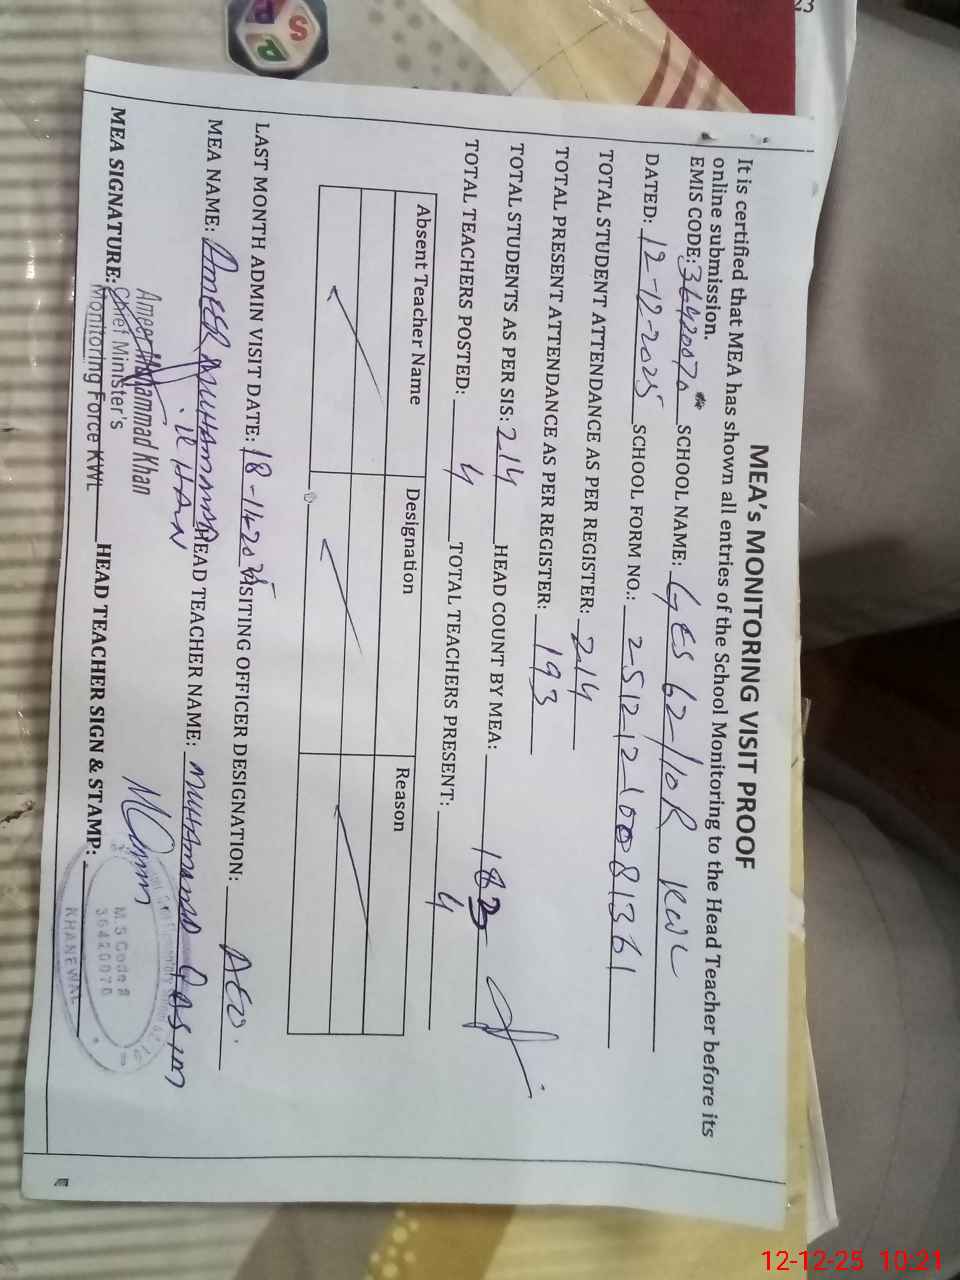 MEA's MONITORING VISIT PROOF
It is certified that MEA has shown all entries of the School Monitoring to the Head Teacher before its
online submission.
EMIS CODE: 36420070 SCHOOL NAME: GES 62-10R KWL
DATED: 12-12-2025 SCHOOL FORM NO.: 2-512-12-10081361
TOTAL STUDENT ATTENDANCE AS PER REGISTER: 214
TOTAL PRESENT ATTENDANCE AS PER REGISTER: 193
TOTAL STUDENTS AS PER SIS: 214 HEAD COUNT BY MEA: 182
TOTAL TEACHERS POSTED: 4 TOTAL TEACHERS PRESENT: 4
Absent Teacher Name Designation Reason
LAST MONTH ADMIN VISIT DATE: 18-11-2025 VISITING OFFICER DESIGNATION: AEO.
MEA NAME: AMEER MUHAMMAD KHAN HEAD TEACHER NAME: MUHAMMAD QASIM
Ameer Muhammad Khan
Chief Minister's
MEA SIGNATURE: Monitoring Force KWL HEAD TEACHER SIGN & STAMP:
M.S Code #
36420070
KHANEWAL
23
12-12-25 10:21